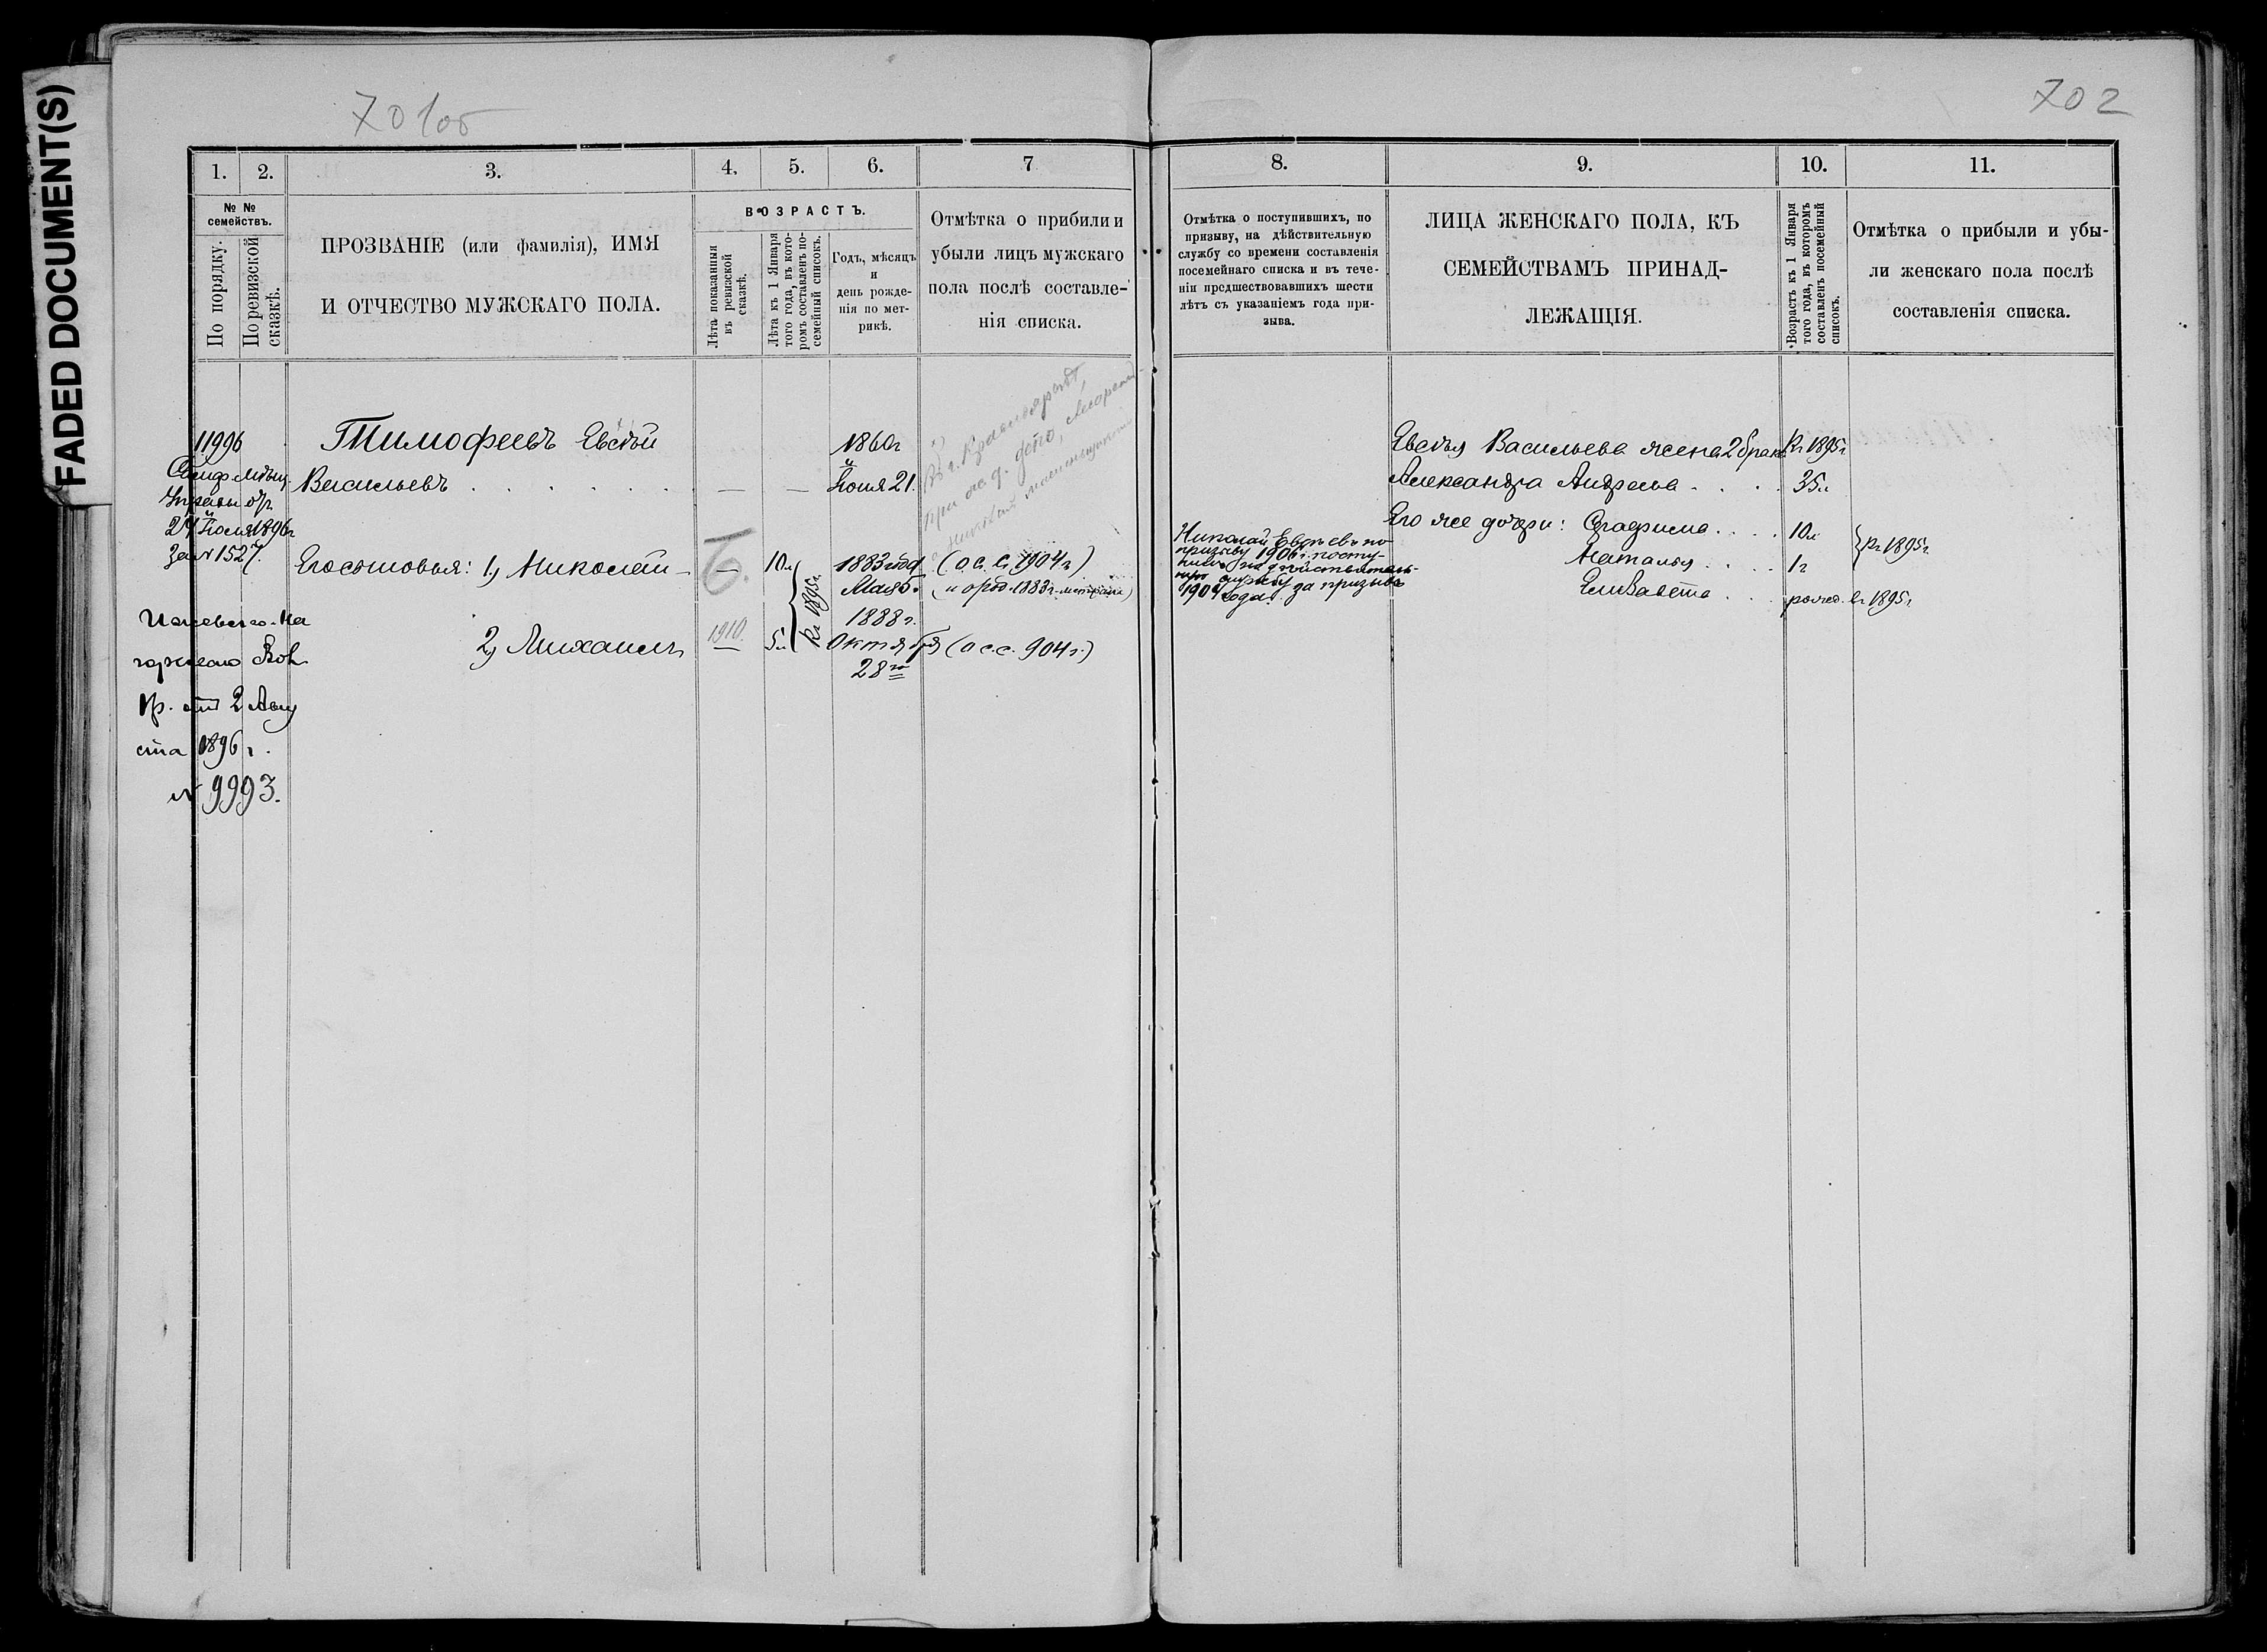 FADED DOCUMENT(S)
701об
702
1.
2.
3.
4.
5.
6.
7
№ №
семействъ.
По порядку.
По ревизской
сказкѣ.
ПРОЗВАНІЕ (или фамилія), ИМЯ
И ОТЧЕСТВО МУЖСКАГО ПОЛА.
ВОЗРАСТЪ.
Лѣта показанныя
въ ревизской
сказкѣ.
Лѣта къ 1 Января
того года, въ кото-
ромъ составленъ по-
семейный списокъ.
Годъ, мѣсяцъ
и
день рожде-
нія по мет-
рикѣ.
Отмѣтка о прибыли и
убыли лицъ мужскаго
пола послѣ составле-
нія списка.
11996
Управы отъ
24 Іюля 1896г
за № 1527.
отъ 2 Авгу
ста 1896г.
№ 9993.
Тимофеевъ Евстѣй
Васильевъ
— —
1860г
Іюля 21.
В г. Красноярскѣ,
при ж. д. депо,
Его сыновья: 1, Николай
—
10л
1883 года
Мая 5.
(О. С. С. 1904г)
2, Михаилъ
1910.
5л
къ 1895г.
1888г.
Октября
28го
(О С. С. 904г.)
8.
9.
10.
11.
Отмѣтка о поступившихъ, по
призыву, на дѣйствительную
службу со времени составленія
посемейнаго списка и въ тече-
ніи предшествовавшихъ шести
лѣтъ съ указаніемъ года при-
зыва.
ЛИЦА ЖЕНСКАГО ПОЛА, КЪ
СЕМЕЙСТВАМЪ ПРИНАД-
ЛЕЖАЩІЯ.
Возрастъ къ 1 Января
того года, въ которомъ
составленъ посемейный
списокъ.
Отмѣтка о прибыли и убы-
ли женскаго пола послѣ
составленія списка.
Николай по
призыву 1906г. посту-
пилъ на дѣйствитель-
ную службу за призывъ
1904 года.
Евстѣя Васильева жена 2 брака
Александра Андреева
къ 1895г
35л
Его же дочери: Серафима
10л
Наталья
1г
къ 1895г.
Елизавета
рожд. въ 1895г.